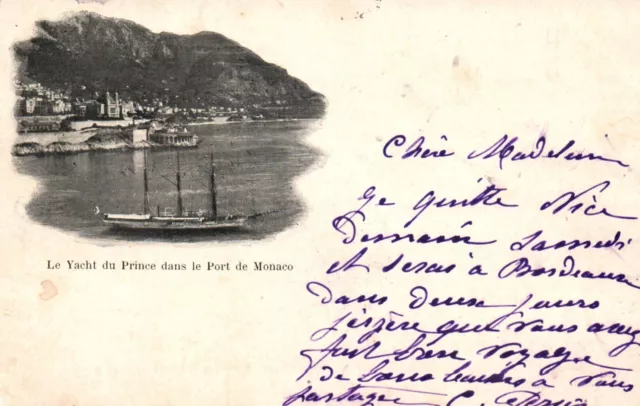 Le Yacht du Prince dans le Port de Monaco
Chère Madeleine
Je quitte Nice
Demain Samedi
et serai à Bordeaux
dans deux jours
j'espère que vous avez
fait bon voyage
de bons baisers à vous
partager